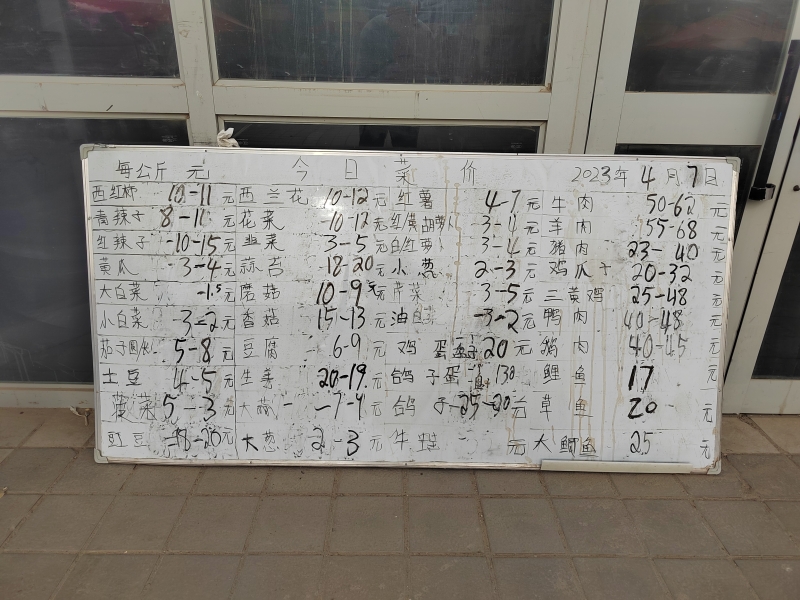 每公斤 元 今日菜价 2023年4月7日
西红柿 10-11元 西兰花 10-12元 红薯 4-7元 牛肉 50-62元
青辣子 8-11元 花菜 -10-12元 红黄胡萝卜 -3-4元 羊肉 55-68元
红辣子 -10-15元 韭菜 3-5元 白红萝卜 3-4元 猪肉 23-40元
黄瓜 -3-4元 蒜苔 -18-20元 小葱 2-3元 鸡爪子 20-32元
大白菜 -1.5元 蘑菇 10-9元 芹菜 3-5元 三黄鸡 25-48元
小白菜 3-2元 香菇 15-13元 油白菜 -3-2元 鸭肉 40-48元
茄子圆长 5-8元 豆腐 6-9元 鸡蛋 20元 鹅肉 40-45元
土豆 4-5元 生姜 20-19元 鸽子蛋 130元 鲤鱼 17元
菠菜 5-3元 大蒜 -7-4元 鸽子 -25-20元 草鱼 20元
豇豆 -18-20元 大葱 2-3元 牛 元 大鲫鱼 25元